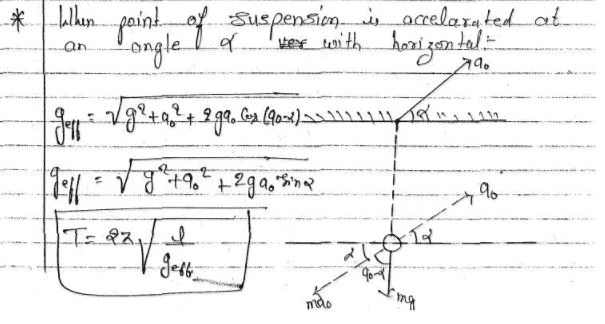 * When point of suspension is accelarated at
an angle α with horizontal:-
a₀
g_eff = √g²+a₀²+2ga₀ Cos(90-α)
α
g_eff = √g²+a₀²+2ga₀ sinα
a₀
T = 2π√l/g_eff
α
α
90-α
ma₀
mg